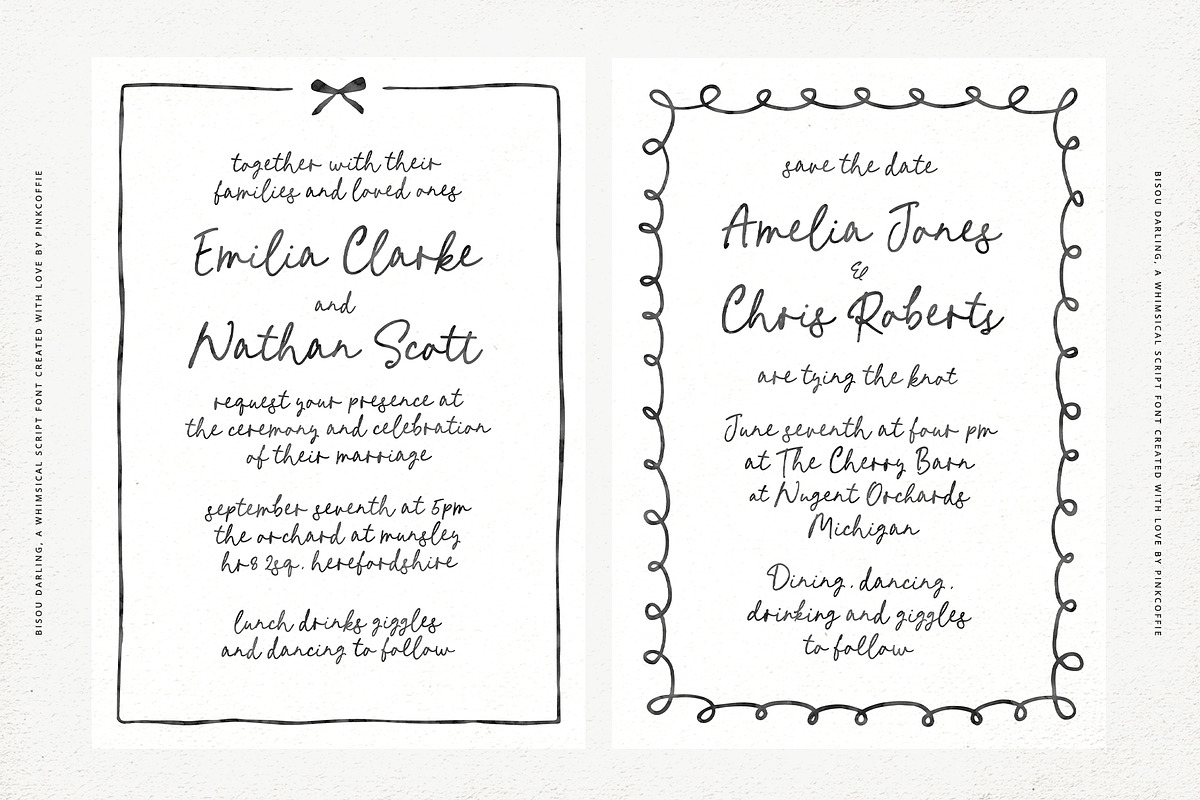 BISOU DARLING, A WHIMSICAL SCRIPT FONT CREATED WITH LOVE BY PINKCOFFIE
together with their
families and loved ones
Emilia Clarke
and
Nathan Scott
request your presence at
the ceremony and celebration
of their marriage
september seventh at 5pm
the orchard at munsley
hr8 2sq. herefordshire
lunch drinks giggles
and dancing to follow
save the date
Amelia Jones
&
Chris Roberts
are tying the knot
June seventh at four pm
at The Cherry Barn
at Nugent Orchards
Michigan
Dining. dancing.
drinking and giggles
to follow
BISOU DARLING, A WHIMSICAL SCRIPT FONT CREATED WITH LOVE BY PINKCOFFIE